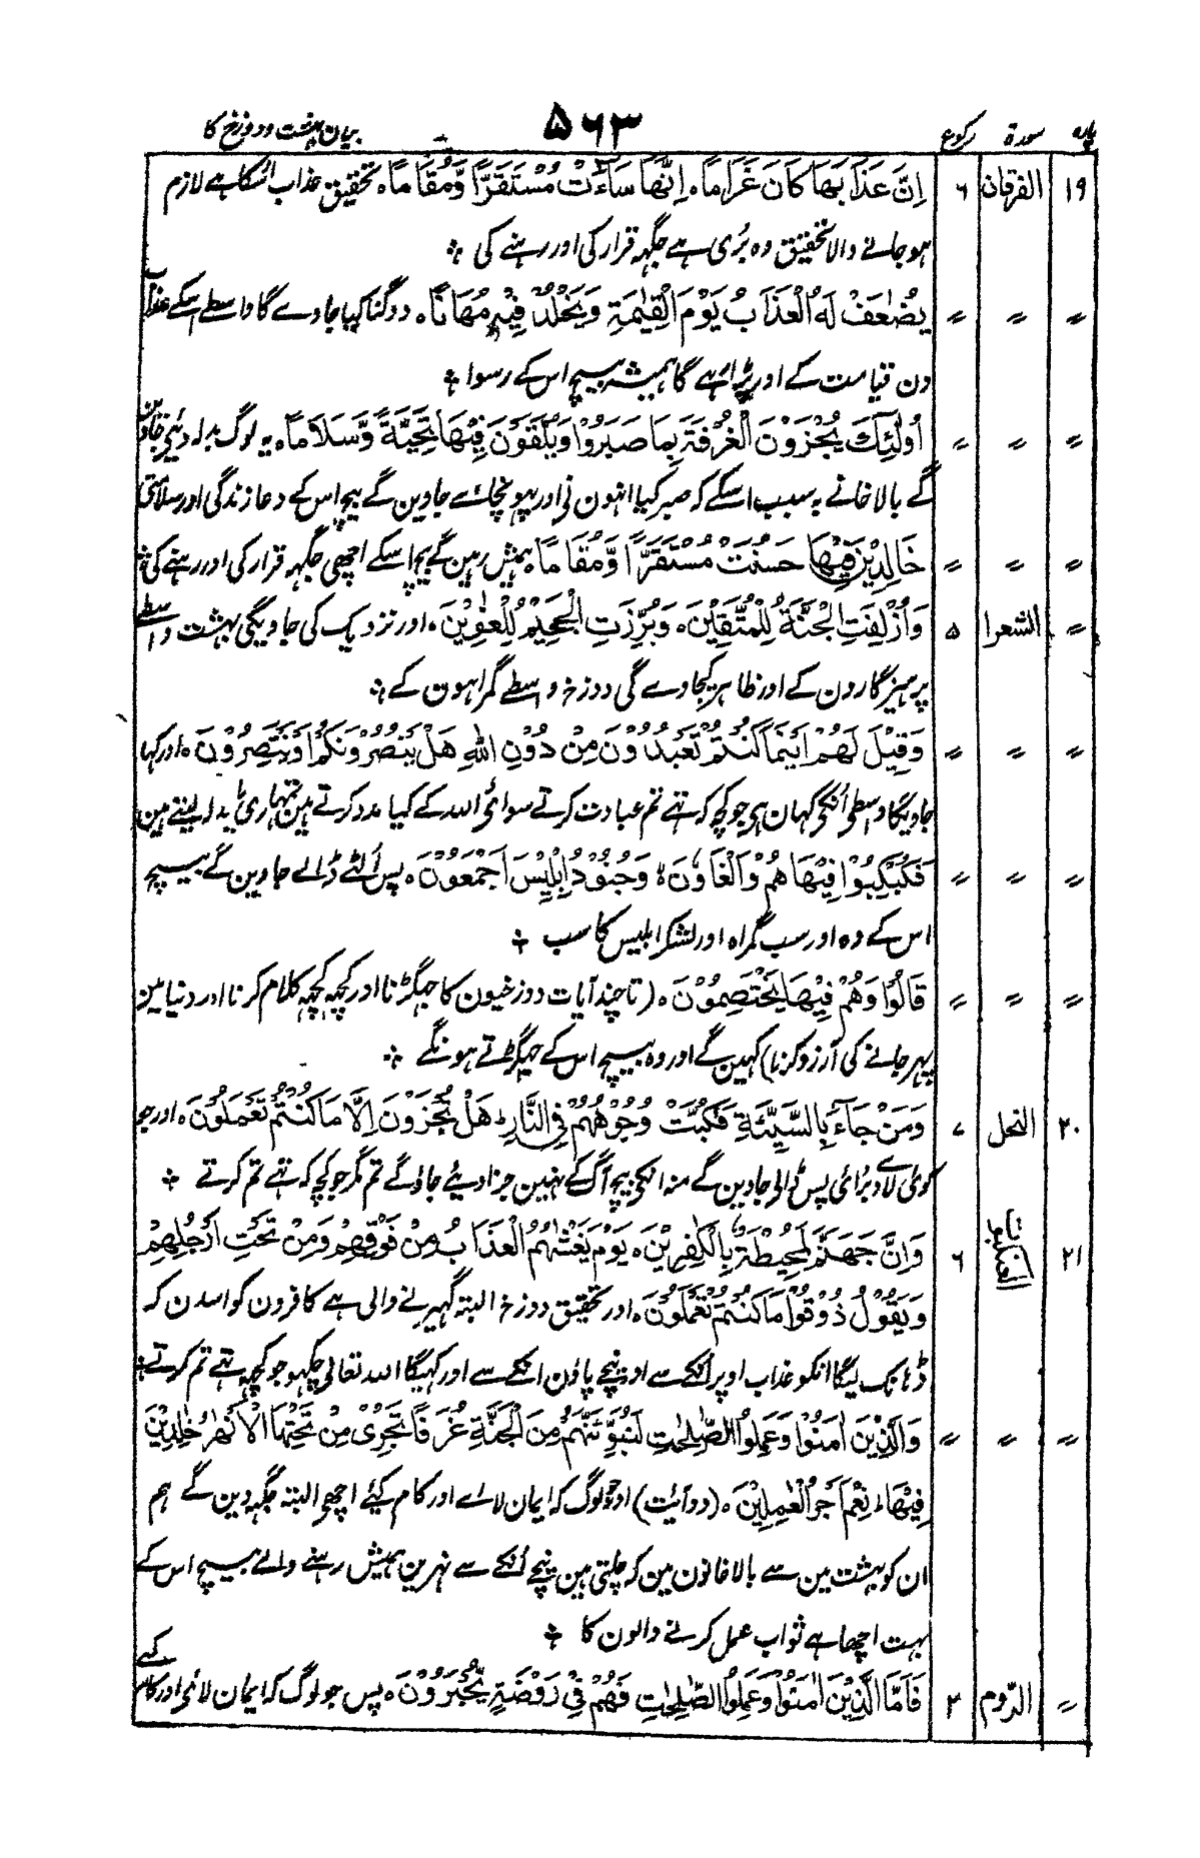 پارہ سورة رکوع ۵۶۳ بیان بہشت ودوزخ کا
۱۹ الفرقان ۶ اِنَّ عَذَابَهَا كَانَ غَرَامًا ہ اِنَّهَا سَآءَتْ مُسْتَقَرًّا وَّمُقَامًا ہ تحقیق عذاب اسکا ہے لازم
ہو جانے والا تحقیق وہ بُری ہے جگہہ قرار کی اور رہنے کی ؞
〃 〃 〃 يُضٰعَفْ لَهُ الْعَذَابُ يَوْمَ الْقِيٰمَةِ وَيَخْلُدْ فِيْهٖ مُهَانًا ہ دوگنا کیا جاوے گا واسطے اسکے عذاب
دن قیامت کے اور پڑا رہے گا ہمیشہ بیچ اس کے رسوا ؞
〃 〃 〃 اُولٰٓئِكَ يُجْزَوْنَ الْغُرْفَةَ بِمَا صَبَرُوْا وَيُلَقَّوْنَ فِيْهَا تَحِيَّةً وَّسَلَامًا ہ یہ لوگ بدلہ دئیے جاوین
گے بالاخانے بہ سبب اسکے کہ صبر کیا انہون نی اور پہونچائے جاوین گے بیچ اس کے دعا زندگی اور سلامتی
〃 〃 〃 خَالِدِيْنَ فِيْهَا حَسُنَتْ مُسْتَقَرًّا وَّمُقَامًا ہ ہمیش رہین گے بیچ اسکے اچھی جگہہ قرار کی اور رہنے کی ؞
〃 الشعرا ۵ وَاُزْلِفَتِ الْجَنَّةُ لِلْمُتَّقِيْنَ ہ وَبُرِّزَتِ الْجَحِيْمُ لِلْغٰوِيْنَ ہ اور نزدیک کی جاویگی بہشت واسطے
پرہیزگارون کے اور ظاہر کیجاوے گی دوزخ واسطے گمراہون کے ؞
〃 〃 〃 وَقِيْلَ لَهُمْ اَيْنَمَا كُنْتُمْ تَعْبُدُوْنَ مِنْ دُوْنِ اللهِ هَلْ يَنْصُرُوْنَكُمْ اَوْ يَنْتَصِرُوْنَ ہ اور کہا
جاویگا واسطی اُنکی کہان ہی جو کچہ کہ تہے تم عبادت کرتے سوائی اللہ کے کیا مدد کرتے ہین تمہاری یا بدلہ لیتے ہین
〃 〃 〃 فَكُبْكِبُوْا فِيْهَا هُمْ وَالْغَاوٗنَ ہ وَجُنُوْدُ اِبْلِيْسَ اَجْمَعُوْنَ ہ پس اُلٹے ڈالے جاوین گے بیچ
اس کے وہ اور سب گمراہ اور لشکر ابلیس کا سب ؞
〃 〃 〃 قَالُوْا وَهُمْ فِيْهَا يَخْتَصِمُوْنَ ہ (تا چند آیات دوزخیون کا جہگڑنا اور کچہہ کچہہ کلام کرنا اور دنیا مین
پہر جانے کی آرزو کرنا) کہین گے اور وہ بیچ اس کے جہگڑتے ہونگے ؞
۲۰ النحل ۷ وَمَنْ جَآءَ بِالسَّيِّئَةِ فَكُبَّتْ وُجُوْهُهُمْ فِى النَّارِ هَلْ تُجْزَوْنَ اِلَّا مَا كُنْتُمْ تَعْمَلُوْنَ ہ اور جو
کوئی لاوے بُرائی پس ڈالی جاوین گے منہ انکی بیچ آگ کے نہین جزا دیئے جاؤگے تم مگر جو کچہ کہ تہے تم کرتے ؞
۲۱ العنکبوت ۶ وَاِنَّ جَهَنَّمَ لَمُحِيْطَةٌۢ بِالْكٰفِرِيْنَ ہ يَوْمَ يَغْشٰىهُمُ الْعَذَابُ مِنْ فَوْقِهِمْ وَمِنْ تَحْتِ اَرْجُلِهِمْ
وَيَقُوْلُ ذُوْقُوْا مَا كُنْتُمْ تَعْمَلُوْنَ ہ اور تحقیق دوزخ البتہ گہیرنے والی ہے کافرون کو اسدن کہ
ڈہانک لیگا انکو عذاب اوپر اُنکے سے اور نیچے پاؤن انکے سے اور کہیگا اللہ تعالی چکہو جو کچہہ تہے تم کرتے ؞
〃 〃 〃 وَالَّذِيْنَ اٰمَنُوْا وَعَمِلُوا الصّٰلِحٰتِ لَنُبَوِّئَنَّهُمْ مِنَ الْجَنَّةِ غُرَفًا تَجْرِىْ مِنْ تَحْتِهَا الْاَنْهٰرُ خٰلِدِيْنَ
فِيْهَا ہ نِعْمَ اَجْرُ الْعٰمِلِيْنَ ہ (دو آیت) اور جو لوگ کہ ایمان لائے اور کام کیئے اچھو البتہ جگہہ دین گے ہم
ان کو بہشت مین سے بالاخانون مین کہ چلتی ہین نیچے اُنکے سے نہرین ہمیش رہنے والے بیچ اس کے
بہت اچھا ہے ثواب عمل کرنے والون کا ؞
〃 الرّوم ۲ فَاَمَّا الَّذِيْنَ اٰمَنُوْا وَعَمِلُوا الصّٰلِحٰتِ فَهُمْ فِىْ رَوْضَةٍ يُّحْبَرُوْنَ ہ پس جو لوگ کہ ایمان لائی اور کام کیے